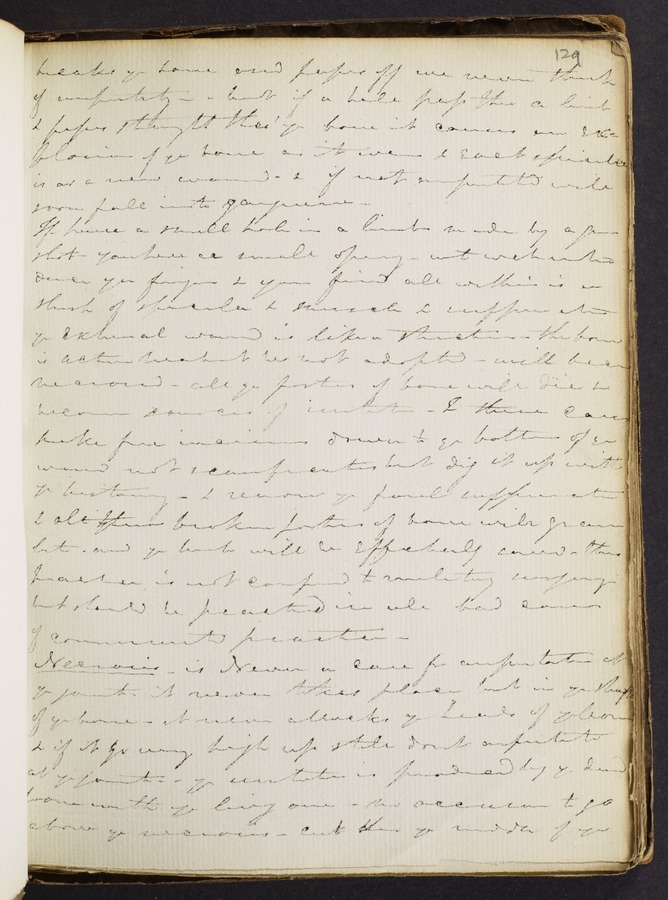 129
breaks ye bone and passes off we never think
of amputating - but if a ball pass thro a limb
& passes straight thro' ye bone it causes an ex=
plosion of ye bone as it were & each spicula
is as a new wound - & if not amputated will
soon fall into gangrene -
If have a small hole in a limb made by a gun
shot - you have a small opening - but
your finger & you find all within is a
of spicula & muscle & suppuration
ye external wound is like a stricture - the bone
is active treatment be not adopted - will become
necrosed - all ye portions of bone will die &
become sources of irritation - In these cases
make free incisions down to ye bottom of ye
wound not scarification but dig it up with
ye bistoury - & remove ye foul suppuration
& all these broken portions of bone will
and ye limb will be effectually cured - this
practice is not confined to military surgery
but should be practised in all bad cases
of community practice -
Necrosis - is never a case for amputation at
ye joint. it never takes place but in ye shaft
of ye bone - it never attacks ye heads of ye bone
& if it go very high up still dont amputate
at ye joint - ye irritation is produced by ye dead
bone with ye living one - no occasion to go
above ye necrosis - cut thro ye middle of ye